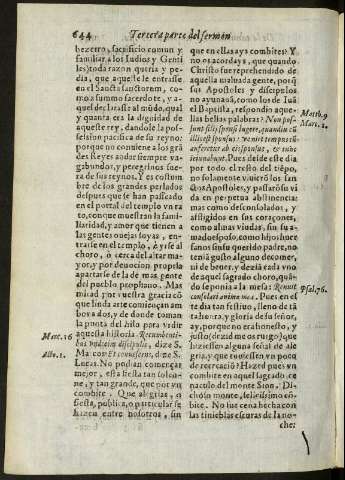 644 Tercera parte del sermon
bezerro, sacrificio comun y
familiar a los Iudios y Genti
les) toda razon queria y pe-
dia, que aquel e le entrasse
en el Sancta sanctorum, co-
mo a summo sacerdote, y a-
quel declarasse al mūdo, qual
y quanta era la dignidad de
aqueste rey, dandole la pos-
session pacifica de su reyno:
porque no conviene a los grā
des Reyes andar siempre va-
gabundos, y peregrinos fue-
ra de sus reynos. Y es costum
bre de los grandes perlados
despues que se han passeado
en el portal del templo vn ra
to, con que muestran la fami-
liaridad, y amor que tienen a
las gentes ouejas suyas, en-
trarse en el templo, ò yrse al
choro, ò cerca del altar ma-
yor, y por deuocion propria
apartarse de la de mas gente
del pueblo prophano. Mas
mirad por vuestra gracia cō
que linda arte comiençan am
bos a dos, y de donde toman
la punta del hilo para vrdir
aquesta historia Recumbenti-
bus vndecim discipulis, dize S.
Marcos. Et conuescens, dize S.
Lucas. No podian começar
mejor, esta fiesta tan solem-
ne, y tan grande, que por vn
combite. Que alegrias, o
fiesta, publica, o particular se
hazen entre nosotros, sin
Marc. 16
Act. 1.
que en ellas aya combites? Y
no os acordays, que quando
Christo fue reprehendido de
aquella maluada gente, porq̄
sus apostoles y discipulos
no ayunauā, como los de Iuā
el Baptista, respondio aque-
llas bellas palabras? Non pos-
sunt filij sponsi lugere, quandiu cū
illis est sponsus: veniet tempus cū
auferetur ab eis sponsus, & tunc
ieiunabunt. Pues desde este dia
por todo el resto del tiēpo,
no solamente viuierō los san
ctos Apostoles, y passarō su vi
da en perpetua abstinencia:
mas como desconsolados, y
affligidos en sus coraçones,
como almas viudas, sin su a-
mado esposo, como hijos huer
fanos sin su querido padre, no
teniā gusto alguno de comer,
ni de beuer, y dezia cada vno
de aquel sagrado choro, quā-
do se ponia a la mesa: Renuit
consolari anima mea. Pues en el
dia tan festiuo, lleno de tā
ta honra, y gloria de su señor,
ay, porque no era honesto, y
justo (dezid nos lo) que ellos
hiziessen alguna señal de ale-
gria, y que touiessen vn poco
de recreacion? Hazed pues vn
combite en aquel sagrado ce-
naculo del monte Sion. Di-
choso monte, felicissimo cō-
bite. No fue cena hecha con
las tinieblas escuras de la no-
che:
Matth. 9
Marc. 2.
Psal. 76.